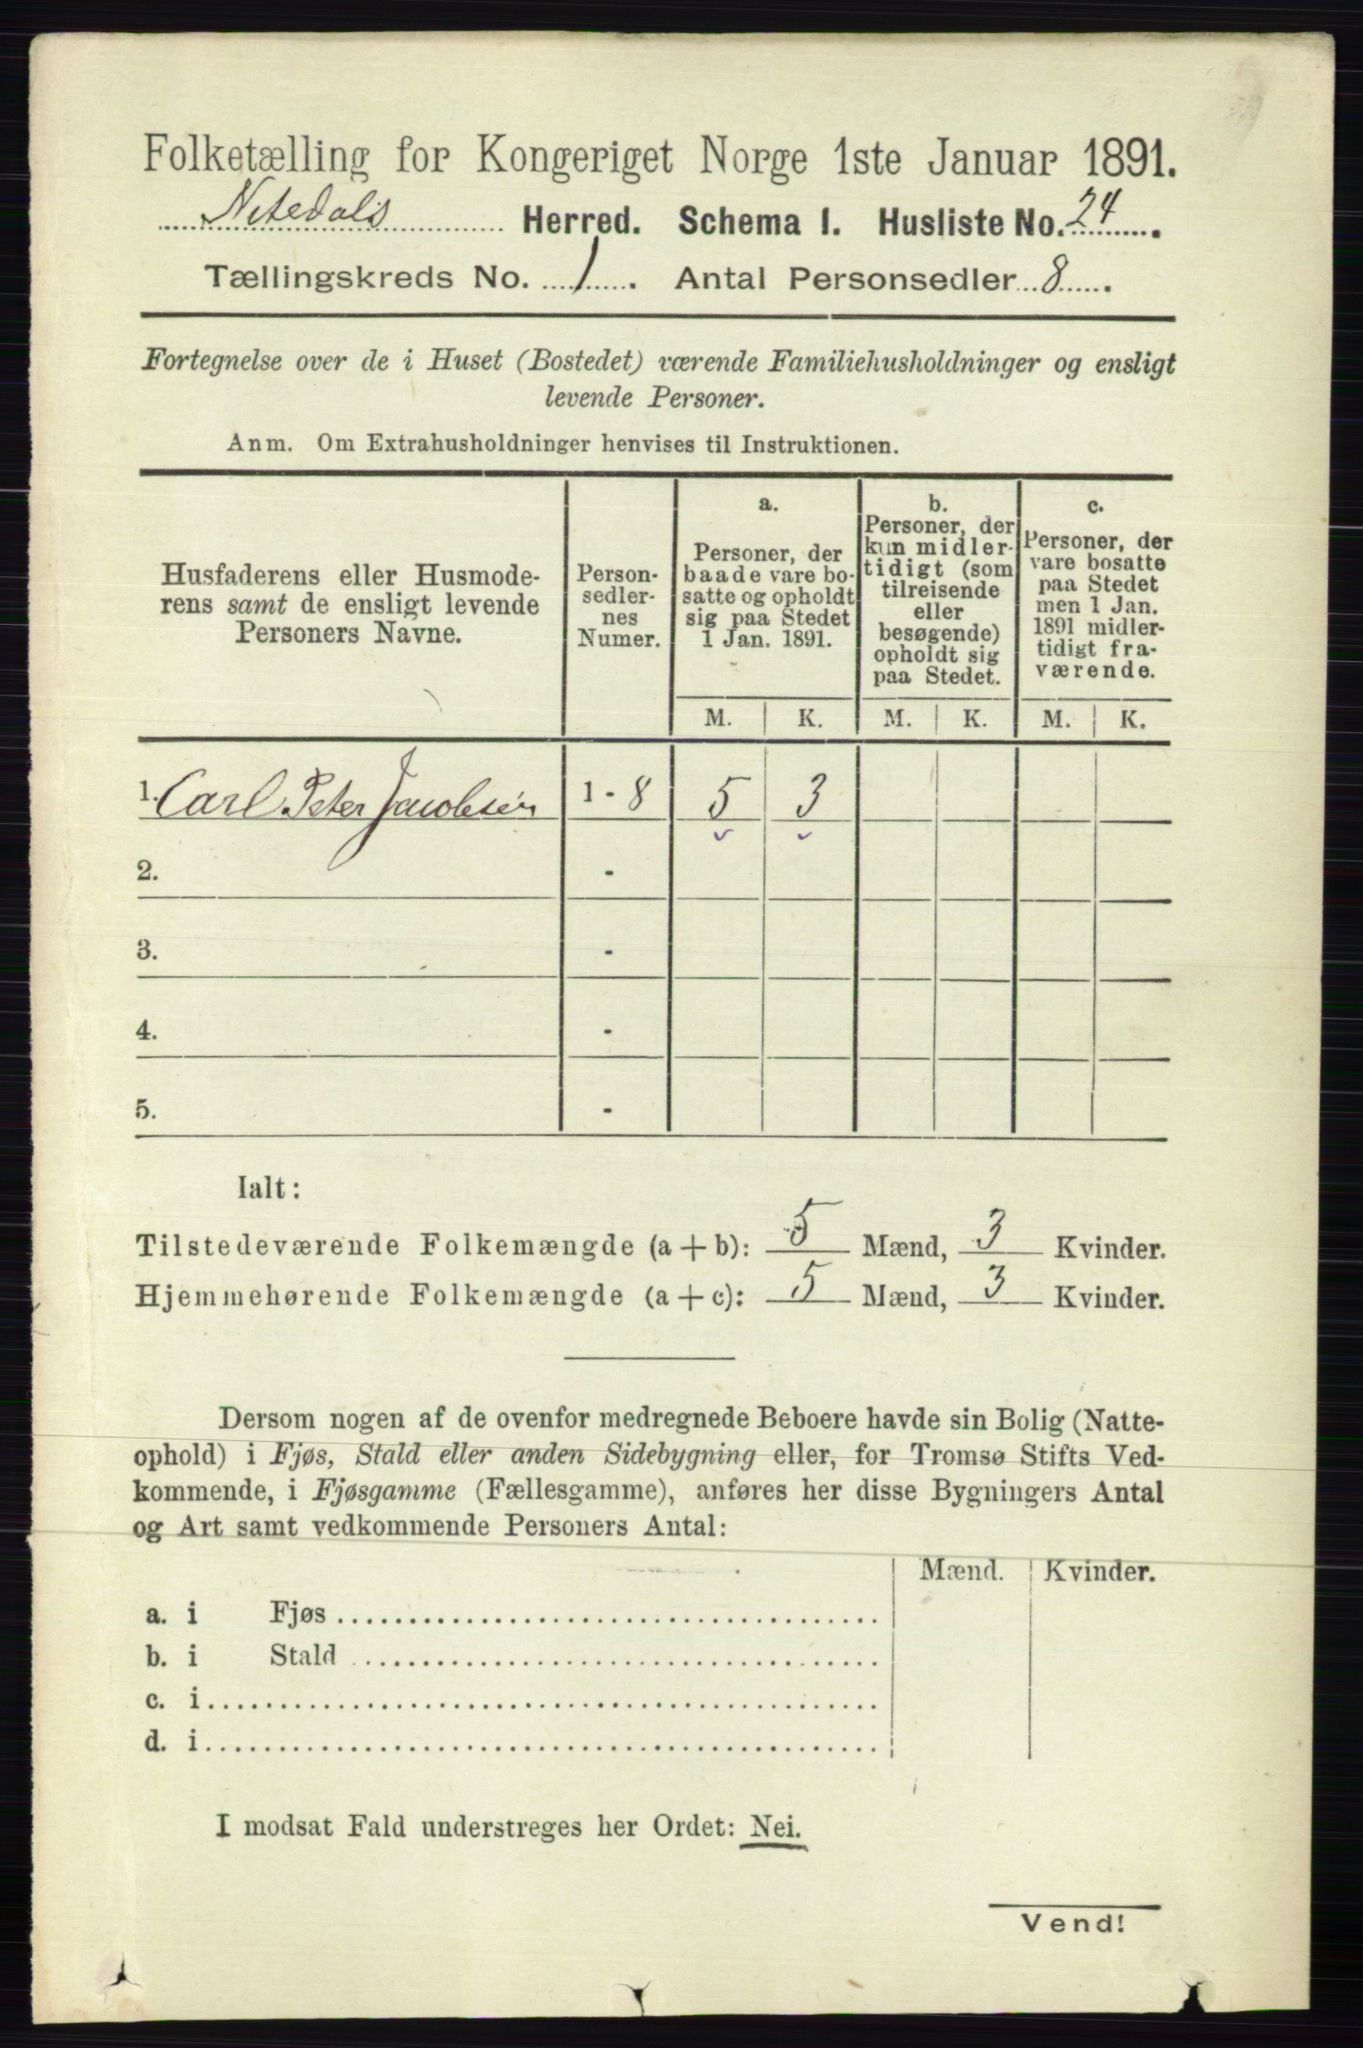 Folketælling for Kongeriget Norge 1ste Januar 1891.
Nitedals Herred. Schema 1. Husliste No. 24.
Tællingskreds No. 1. Antal Personsedler 8.
Fortegnelse over de i Huset (Bostedet) værende Familiehusholdninger og ensligt
levende Personer.
Anm. Om Extrahusholdninger henvises til Instruktionen.
Husfaderens eller Husmode-
rens samt de ensligt levende
Personers Navne.
Person-
sedler-
nes
Numer.
a.
Personer, der
baade vare bo-
satte og opholdt
sig paa Stedet
1 Jan. 1891.
b.
Personer, der
kun midler-
tidigt (som
tilreisende
eller
besøgende)
opholdt sig
paa Stedet.
c.
Personer, der
vare bosatte
paa Stedet
men 1 Jan.
1891 midler-
tidigt fra-
værende.
M. K. M. K. M. K.
1. Carl Peter Jacobsen 1 - 8 5 3
2. -
3. -
4. -
5. -
Ialt:
Tilstedeværende Folkemængde (a + b): 5 Mænd, 3 Kvinder.
Hjemmehørende Folkemængde (a + c): 5 Mænd, 3 Kvinder.
Dersom nogen af de ovenfor medregnede Beboere havde sin Bolig (Natte-
ophold) i Fjøs, Stald eller anden Sidebygning eller, for Tromsø Stifts Ved-
kommende, i Fjøsgamme (Fællesgamme), anføres her disse Bygningers Antal
og Art samt vedkommende Personers Antal:
Mænd. Kvinder.
a. i Fjøs
b. i Stald
c. i
d. i
I modsat Fald understreges her Ordet: Nei.
Vend!